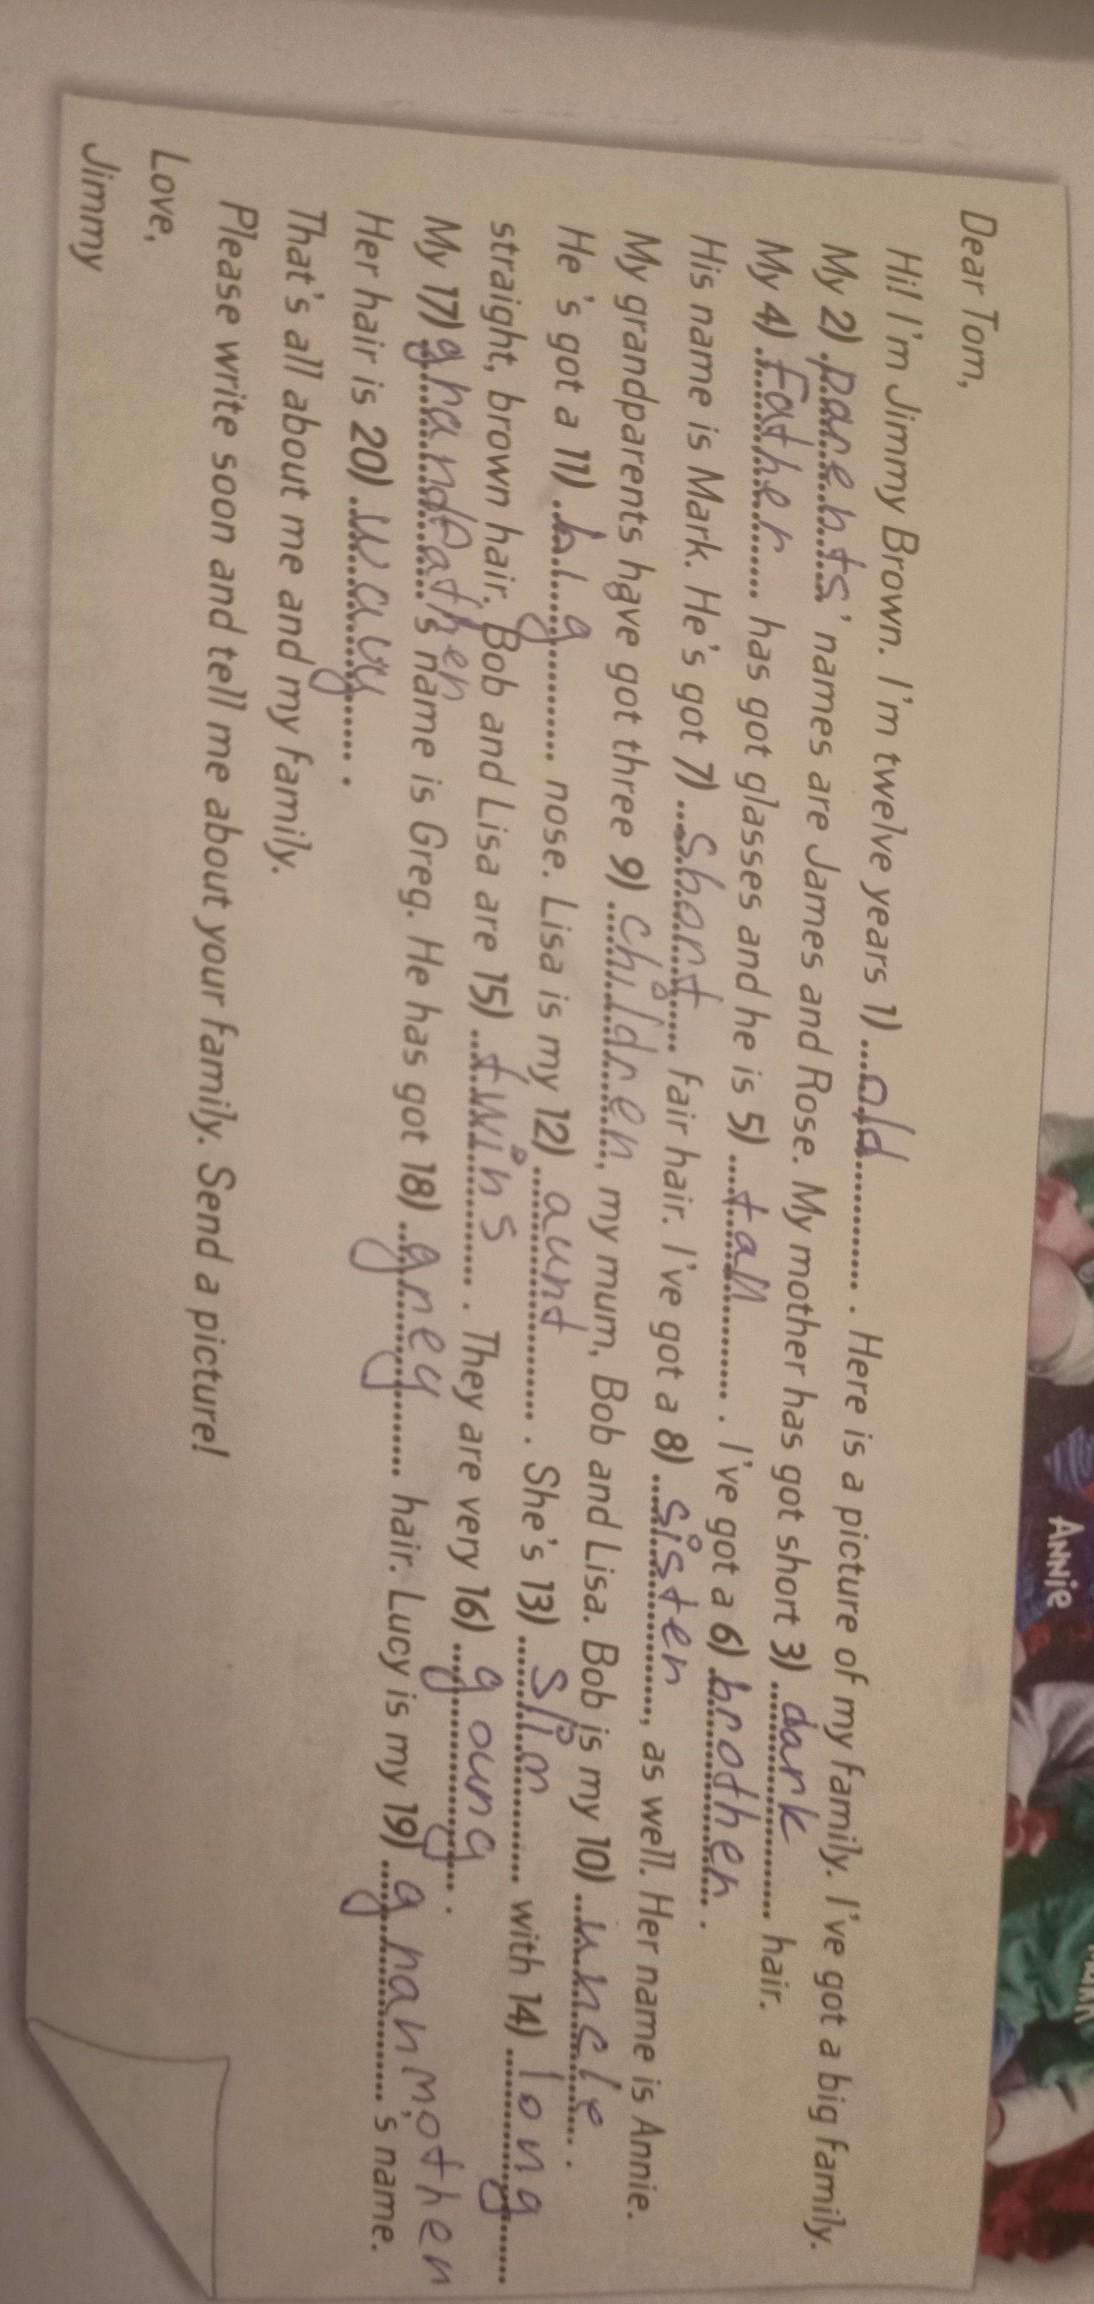 ANNIE
Dear Tom,
Hi! I'm Jimmy Brown. I'm twelve years 1) old. Here is a picture of my family. I've got a big family.
My 2) parents' names are James and Rose. My mother has got short 3) dark hair.
My 4) father has got glasses and he is 5) tall. I've got a 6) brother.
His name is Mark. He's got 7) short fair hair. I've got a 8) sister, as well. Her name is Annie.
My grandparents have got three 9) children, my mum, Bob and Lisa. Bob is my 10) uncle.
He's got a 11) big nose. Lisa is my 12) aunt. She's 13) slim with 14) long
straight, brown hair. Bob and Lisa are 15) twins. They are very 16) young.
My 17) grandfather's name is Greg. He has got 18) grey hair. Lucy is my 19) granmother's name.
Her hair is 20) wavy.
That's all about me and my family.
Please write soon and tell me about your family. Send a picture!
Love,
Jimmy